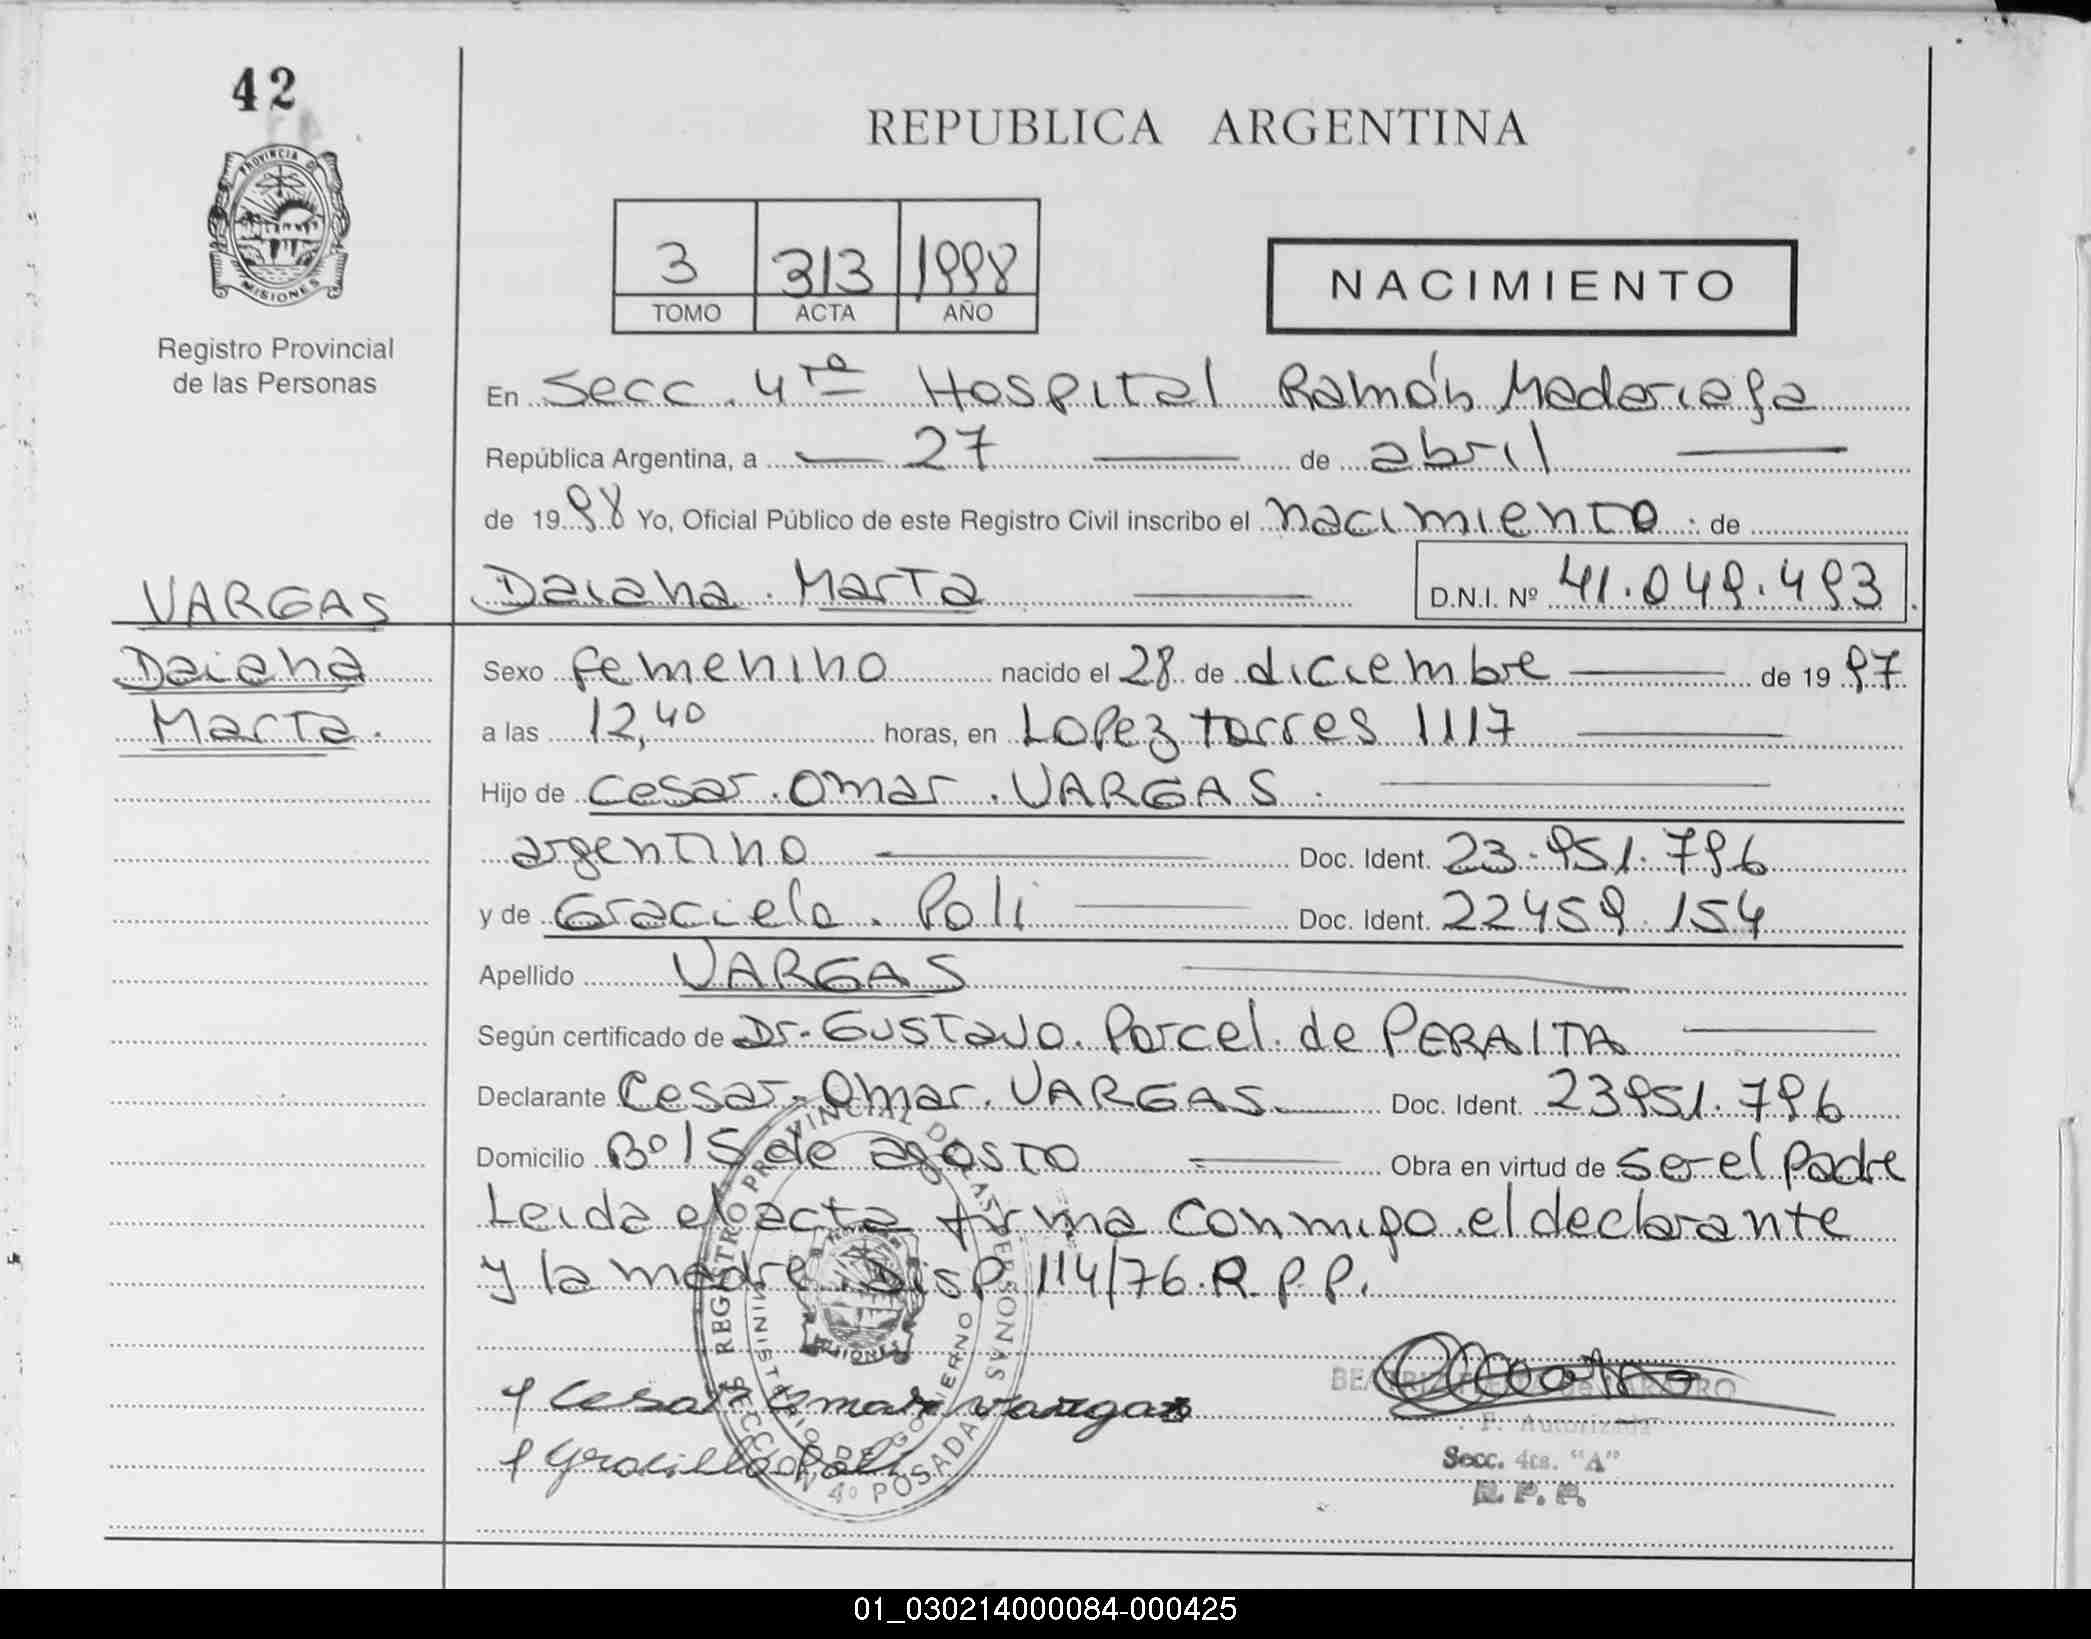 42
REPUBLICA ARGENTINA
PROVINCIA DE
MISIONES
Registro Provincial
de las Personas
3 313 1998
TOMO ACTA AÑO
NACIMIENTO
En Secc. 4ta Hospital Ramón Madariaga
República Argentina, a 27 de abril
de 1998 Yo, Oficial Público de este Registro Civil inscribo el nacimiento : de
VARGAS
Daiana
Marta.
Daiana Marta D.N.I. Nº 41.049.493
Sexo femenino nacido el 28 de diciembre de 1997
a las 12,40 horas, en Lopez torres 1117
Hijo de Cesar Omar VARGAS
argentino Doc. Ident. 23.951.796
y de Graciela Poli Doc. Ident. 22459.154
Apellido VARGAS
Según certificado de Dr. Gustavo Porcel de PERALTA
Declarante Cesar Omar VARGAS Doc. Ident. 23951.796
Domicilio Bº 15 de agosto Obra en virtud de ser el padre
Leida el acta firma conmigo el declarante
y la madre Disp. 114/76 R.P.P.
REGISTRO PROVINCIAL DE LAS PERSONAS
MINISTERIO DE GOBIERNO
MISIONES
SECCION 4º POSADAS
Cesar Omar vargas
Poli
F. Autorizada
Secc. 4ta. "A"
R. P. P.
01_030214000084-000425